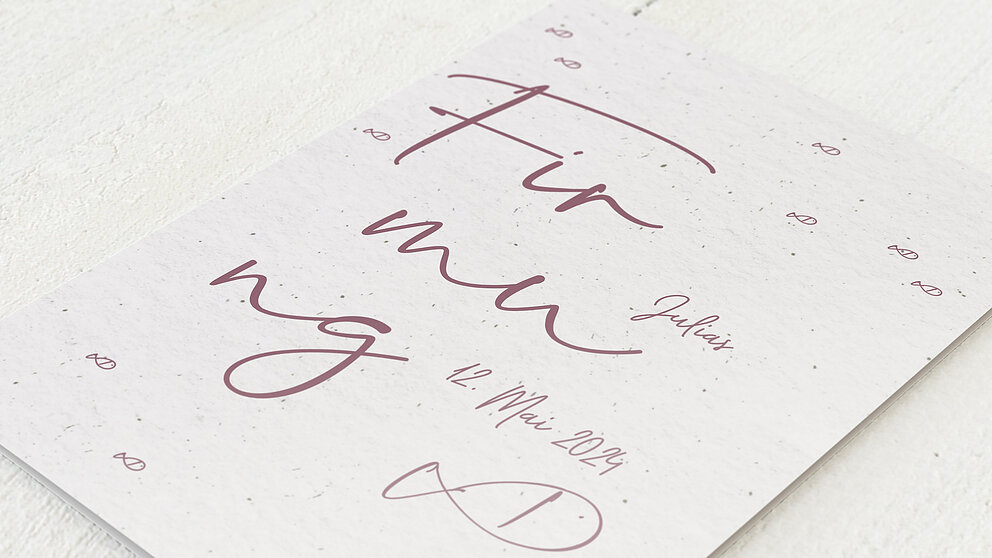 Fir
mu
ng
Julias
12. Mai 2024